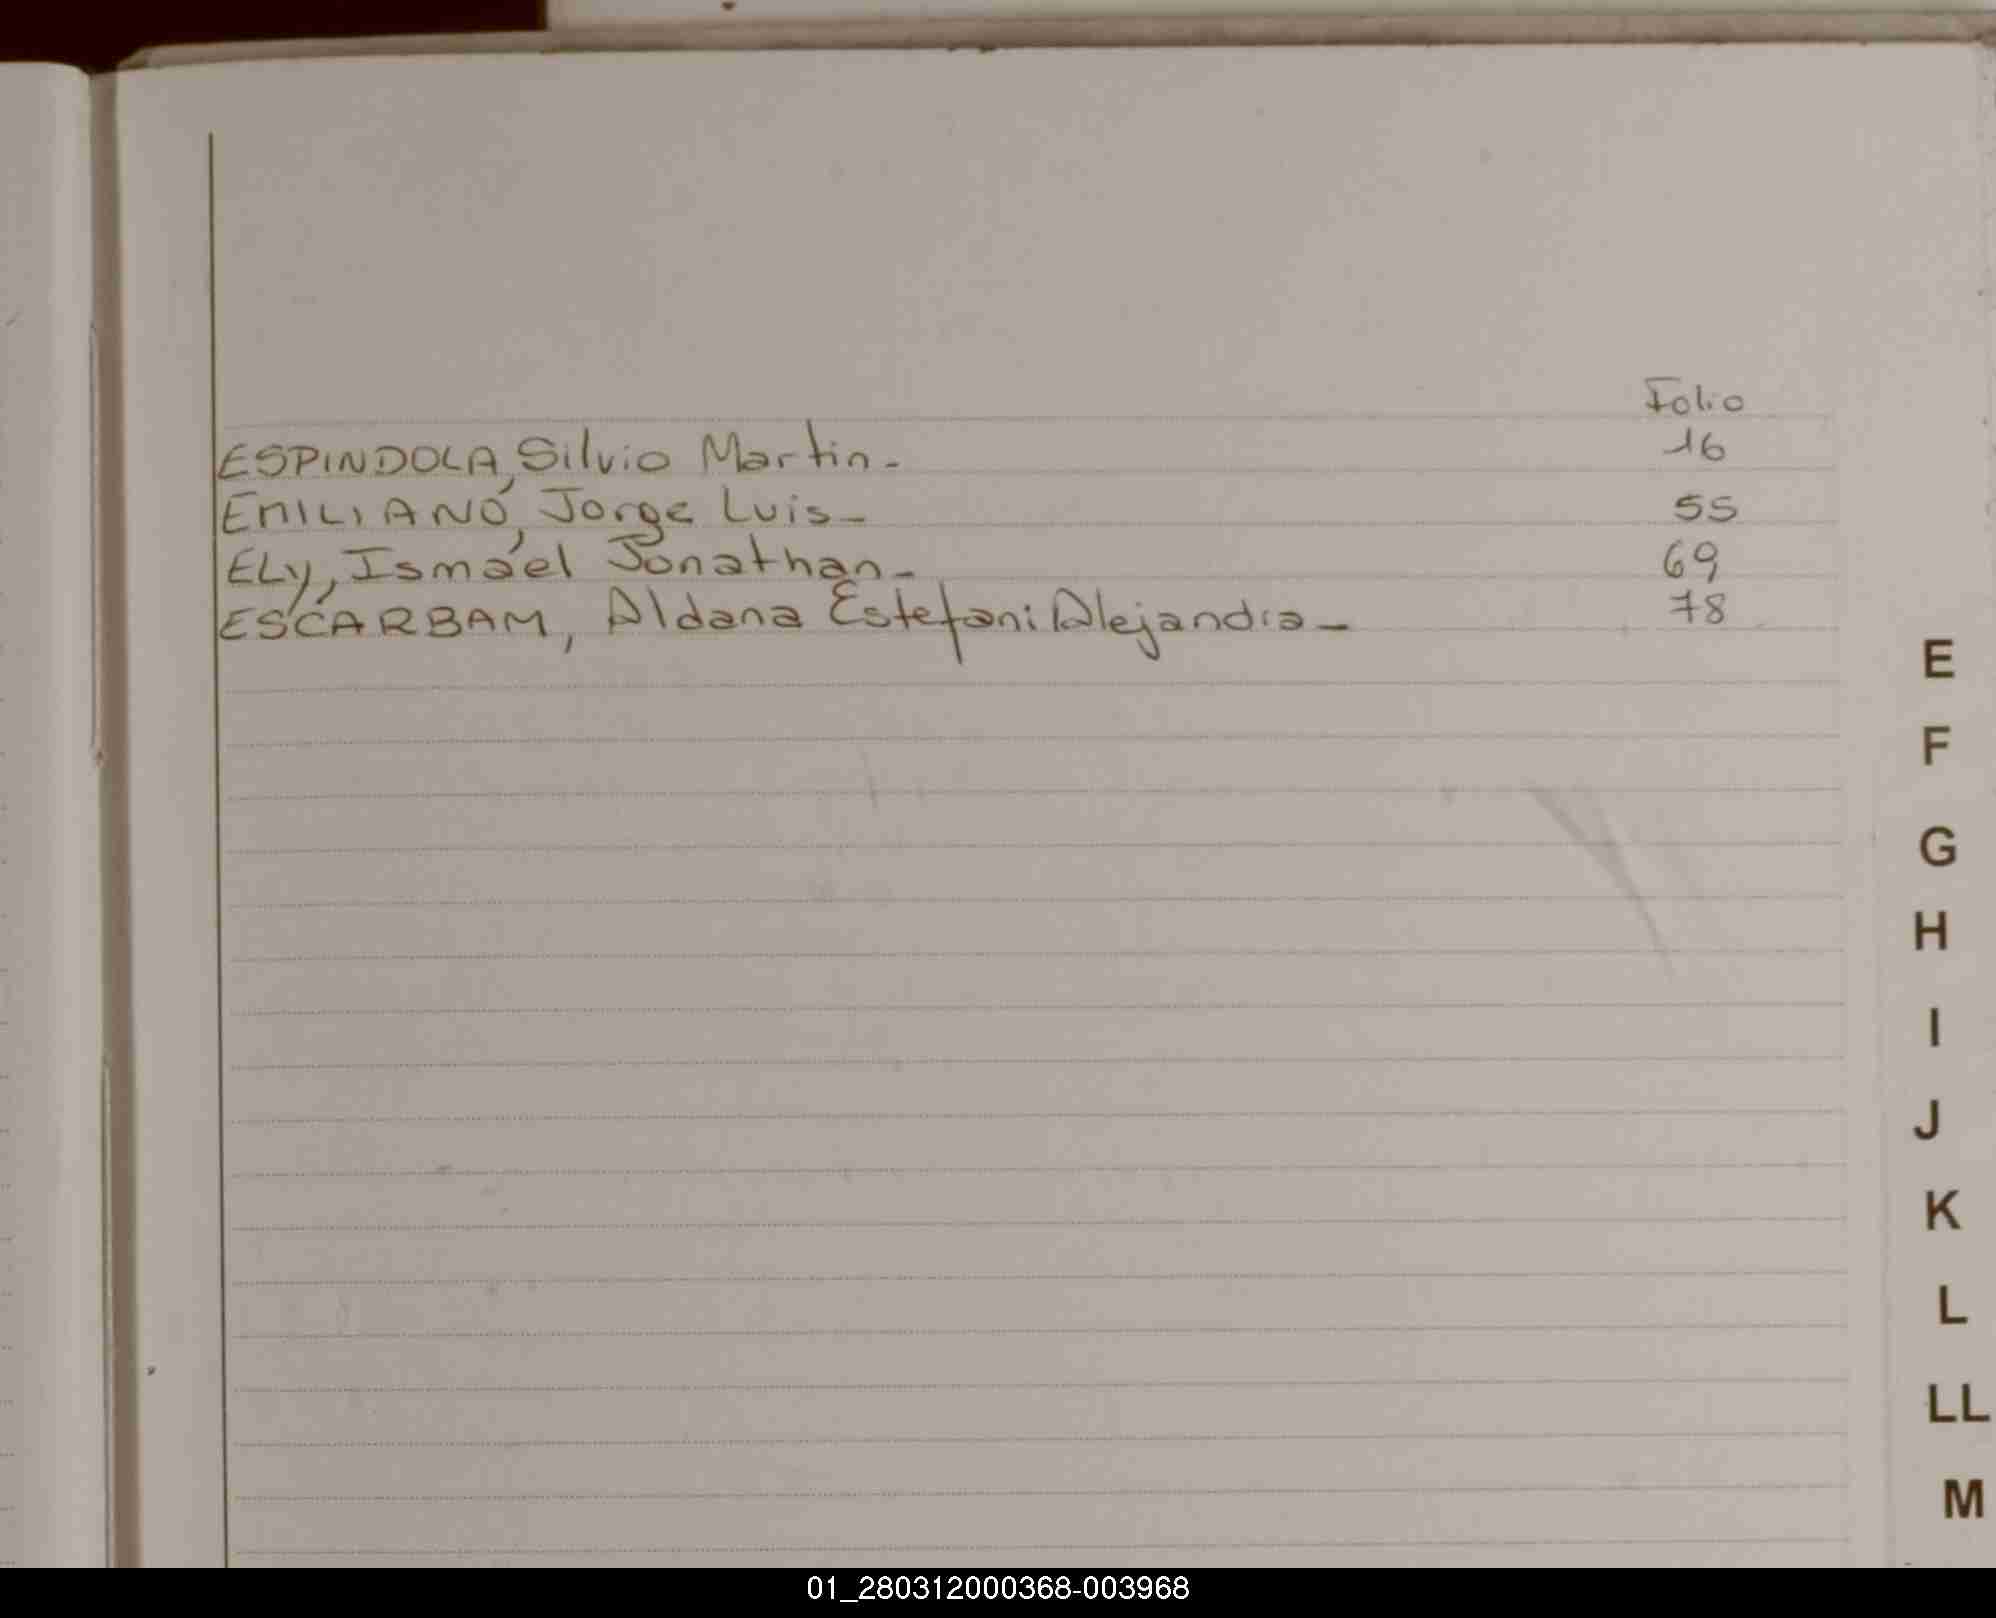 Folio
ESPINDOLA, Silvio Martin- 16
EMILIANO, Jorge Luis- 55
ELy, Ismael Jonathan- 69
ESCARBAM, Aldana Estefani Alejandra- 78
E
F
G
H
I
J
K
L
LL
M
01_280312000368-003968